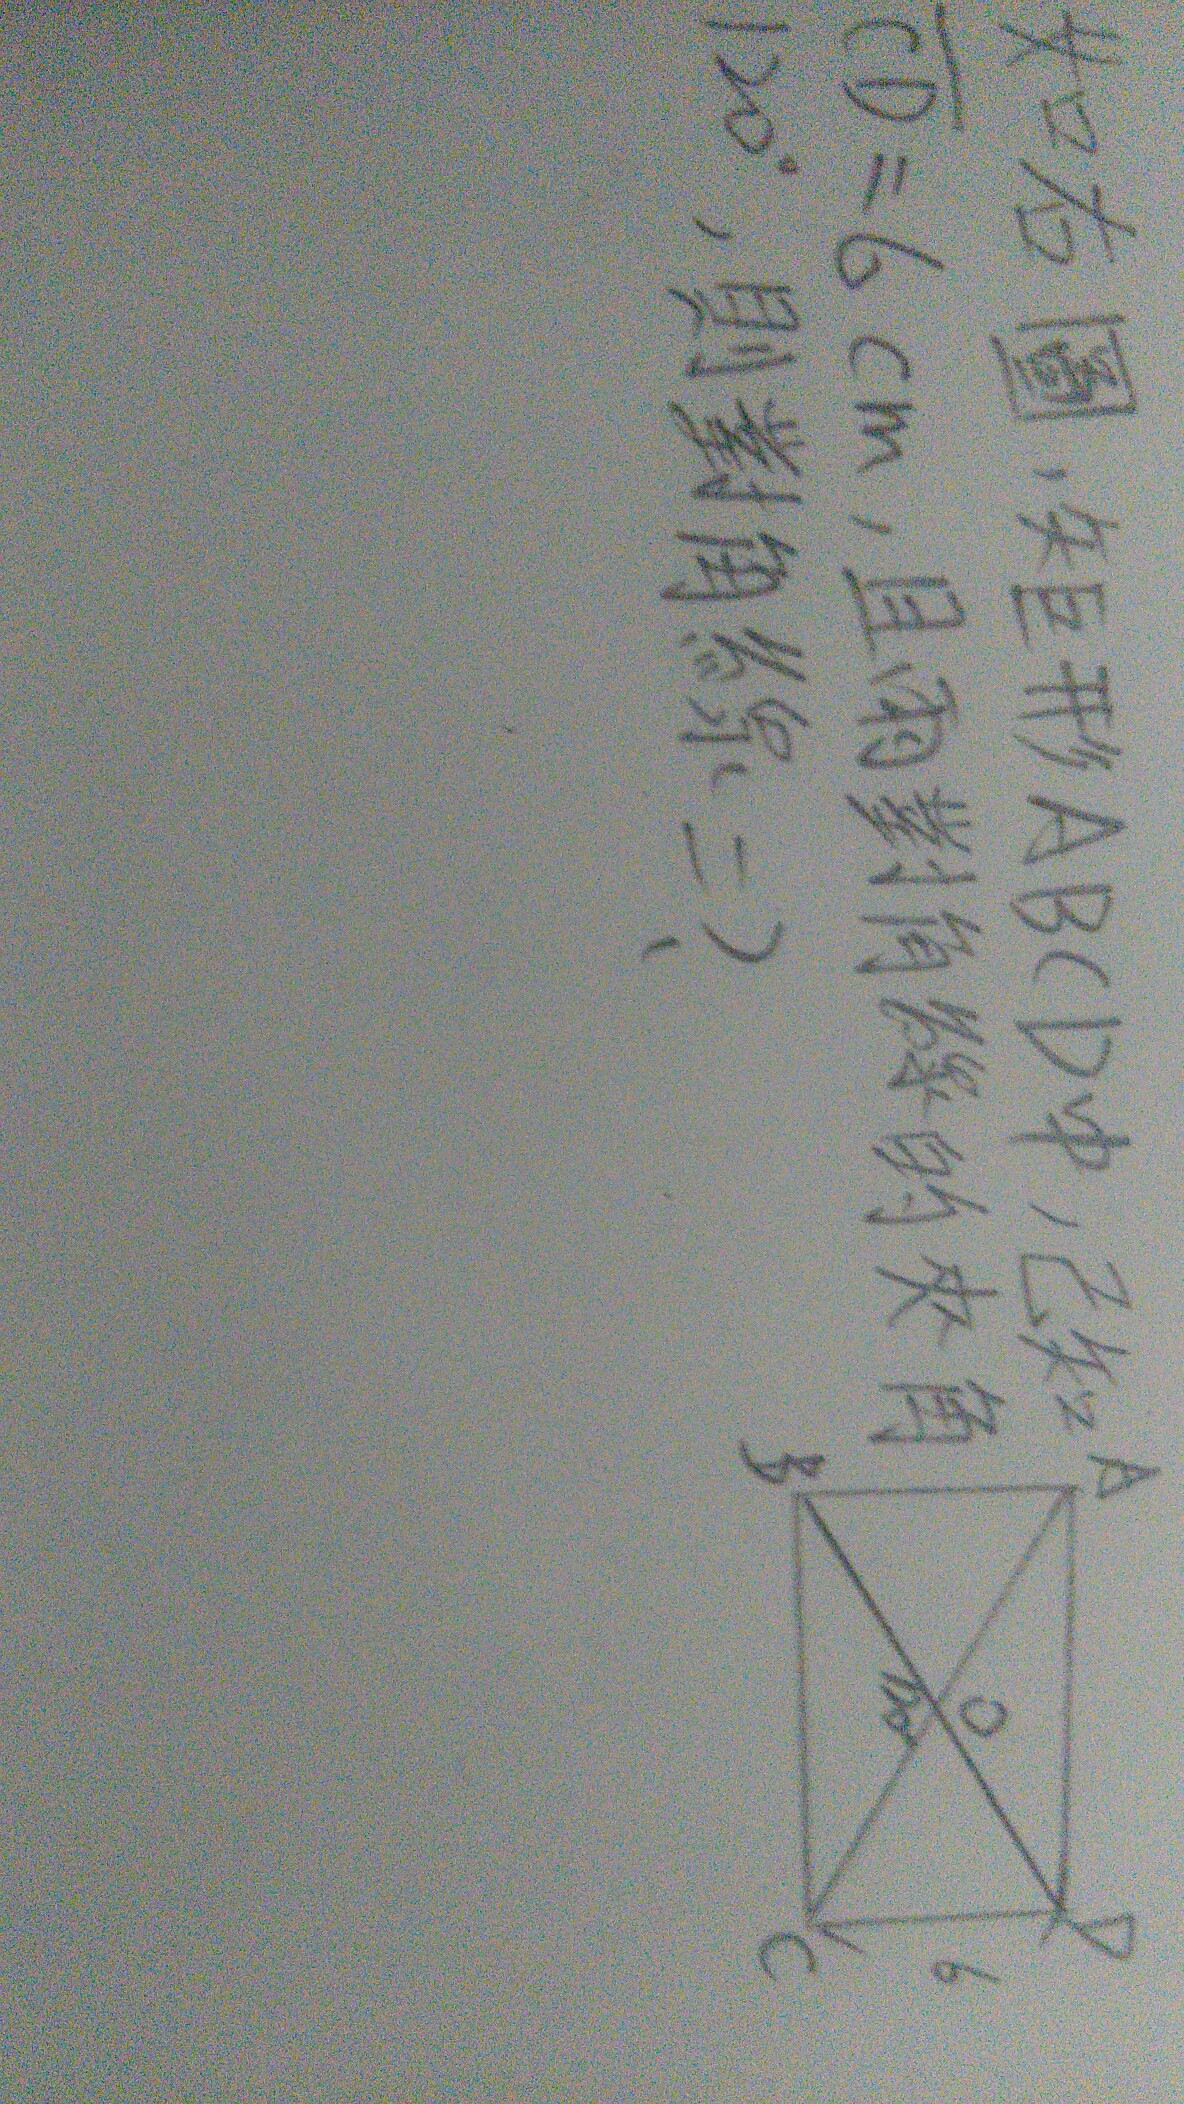 如右圖,矩形ABCD中,已知
CD=6cm,且兩對角線的夾角
120°,則對角線=?
A
D
O
120°
6
B
C